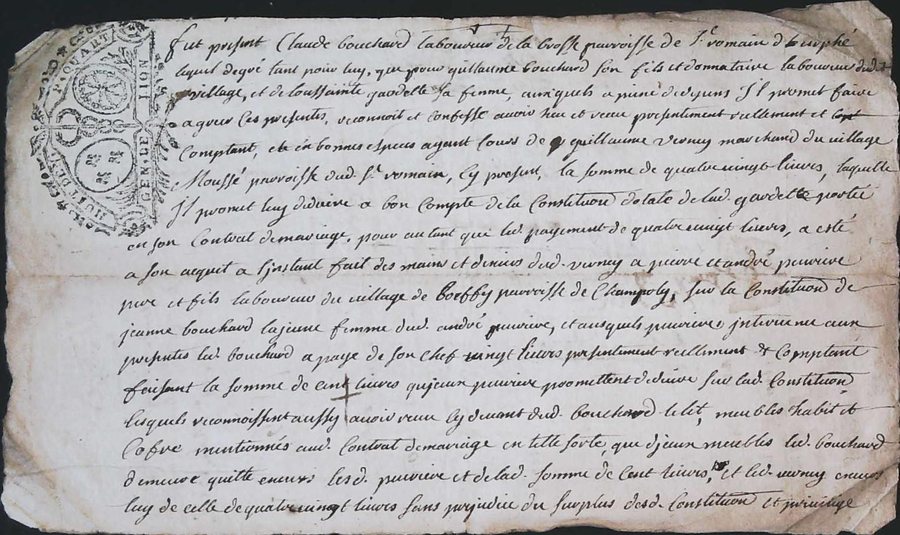 HUIT DEN. P. QUART
GEN. DE LION
fut present Claude bouchard laboureur de la brosse parroisse de St. romain d'hurphé
lequel de gré tant pour luy, que pour guillaume bouchard son fils et donnataire laboureur dud.
village, et de toussainte gardette sa femme, auxquels a peine de depens Il promet faire
agreer ces presentes, reconnoit et confesse avoir heu et receu presentiment reellement et
Comptant, et in bonnes especes ayant Cours de guillaume verney marchand du village
Moussé parroisse dud. St. romain, Cy present, la somme de quatre vingt livres, laquelle
Il promet luy deduire a bon Compte de la Constitution dotale de lad. gardette portée
en son Contrat de mariage, pour autant que led. payement de quatre vingt livres, a esté
a son acquit a l'instant fait des mains et deniers dud. verney a pierre et andré puirive
pere et fils laboureur du village de boeffy parroisse de Champoly, sur la Constitution de
jeanne bouchard la jeune femme dud. andré puirive, et ausquels puirive intervenue aux
presentes led. bouchard a payé de son chef vingt livres presentiment reellement & Comptant
faisant la somme de cent livres qu'jceux puirive promettent deduire sur lad. Constitution
lesquels reconnoissent aussy avoir receu cy devant dud. bouchard le lit, meubles habit et
Cofre mentionnés aud. Contrat de mariage en telle sorte, que d'jceux meubles led. bouchard
demeure quitte envers lesd. puirive et de lad. somme de Cent livres, et led. verney envers
luy de celle de quatre vingt livres sans prejudice du surplus desd. Constitution et privilege